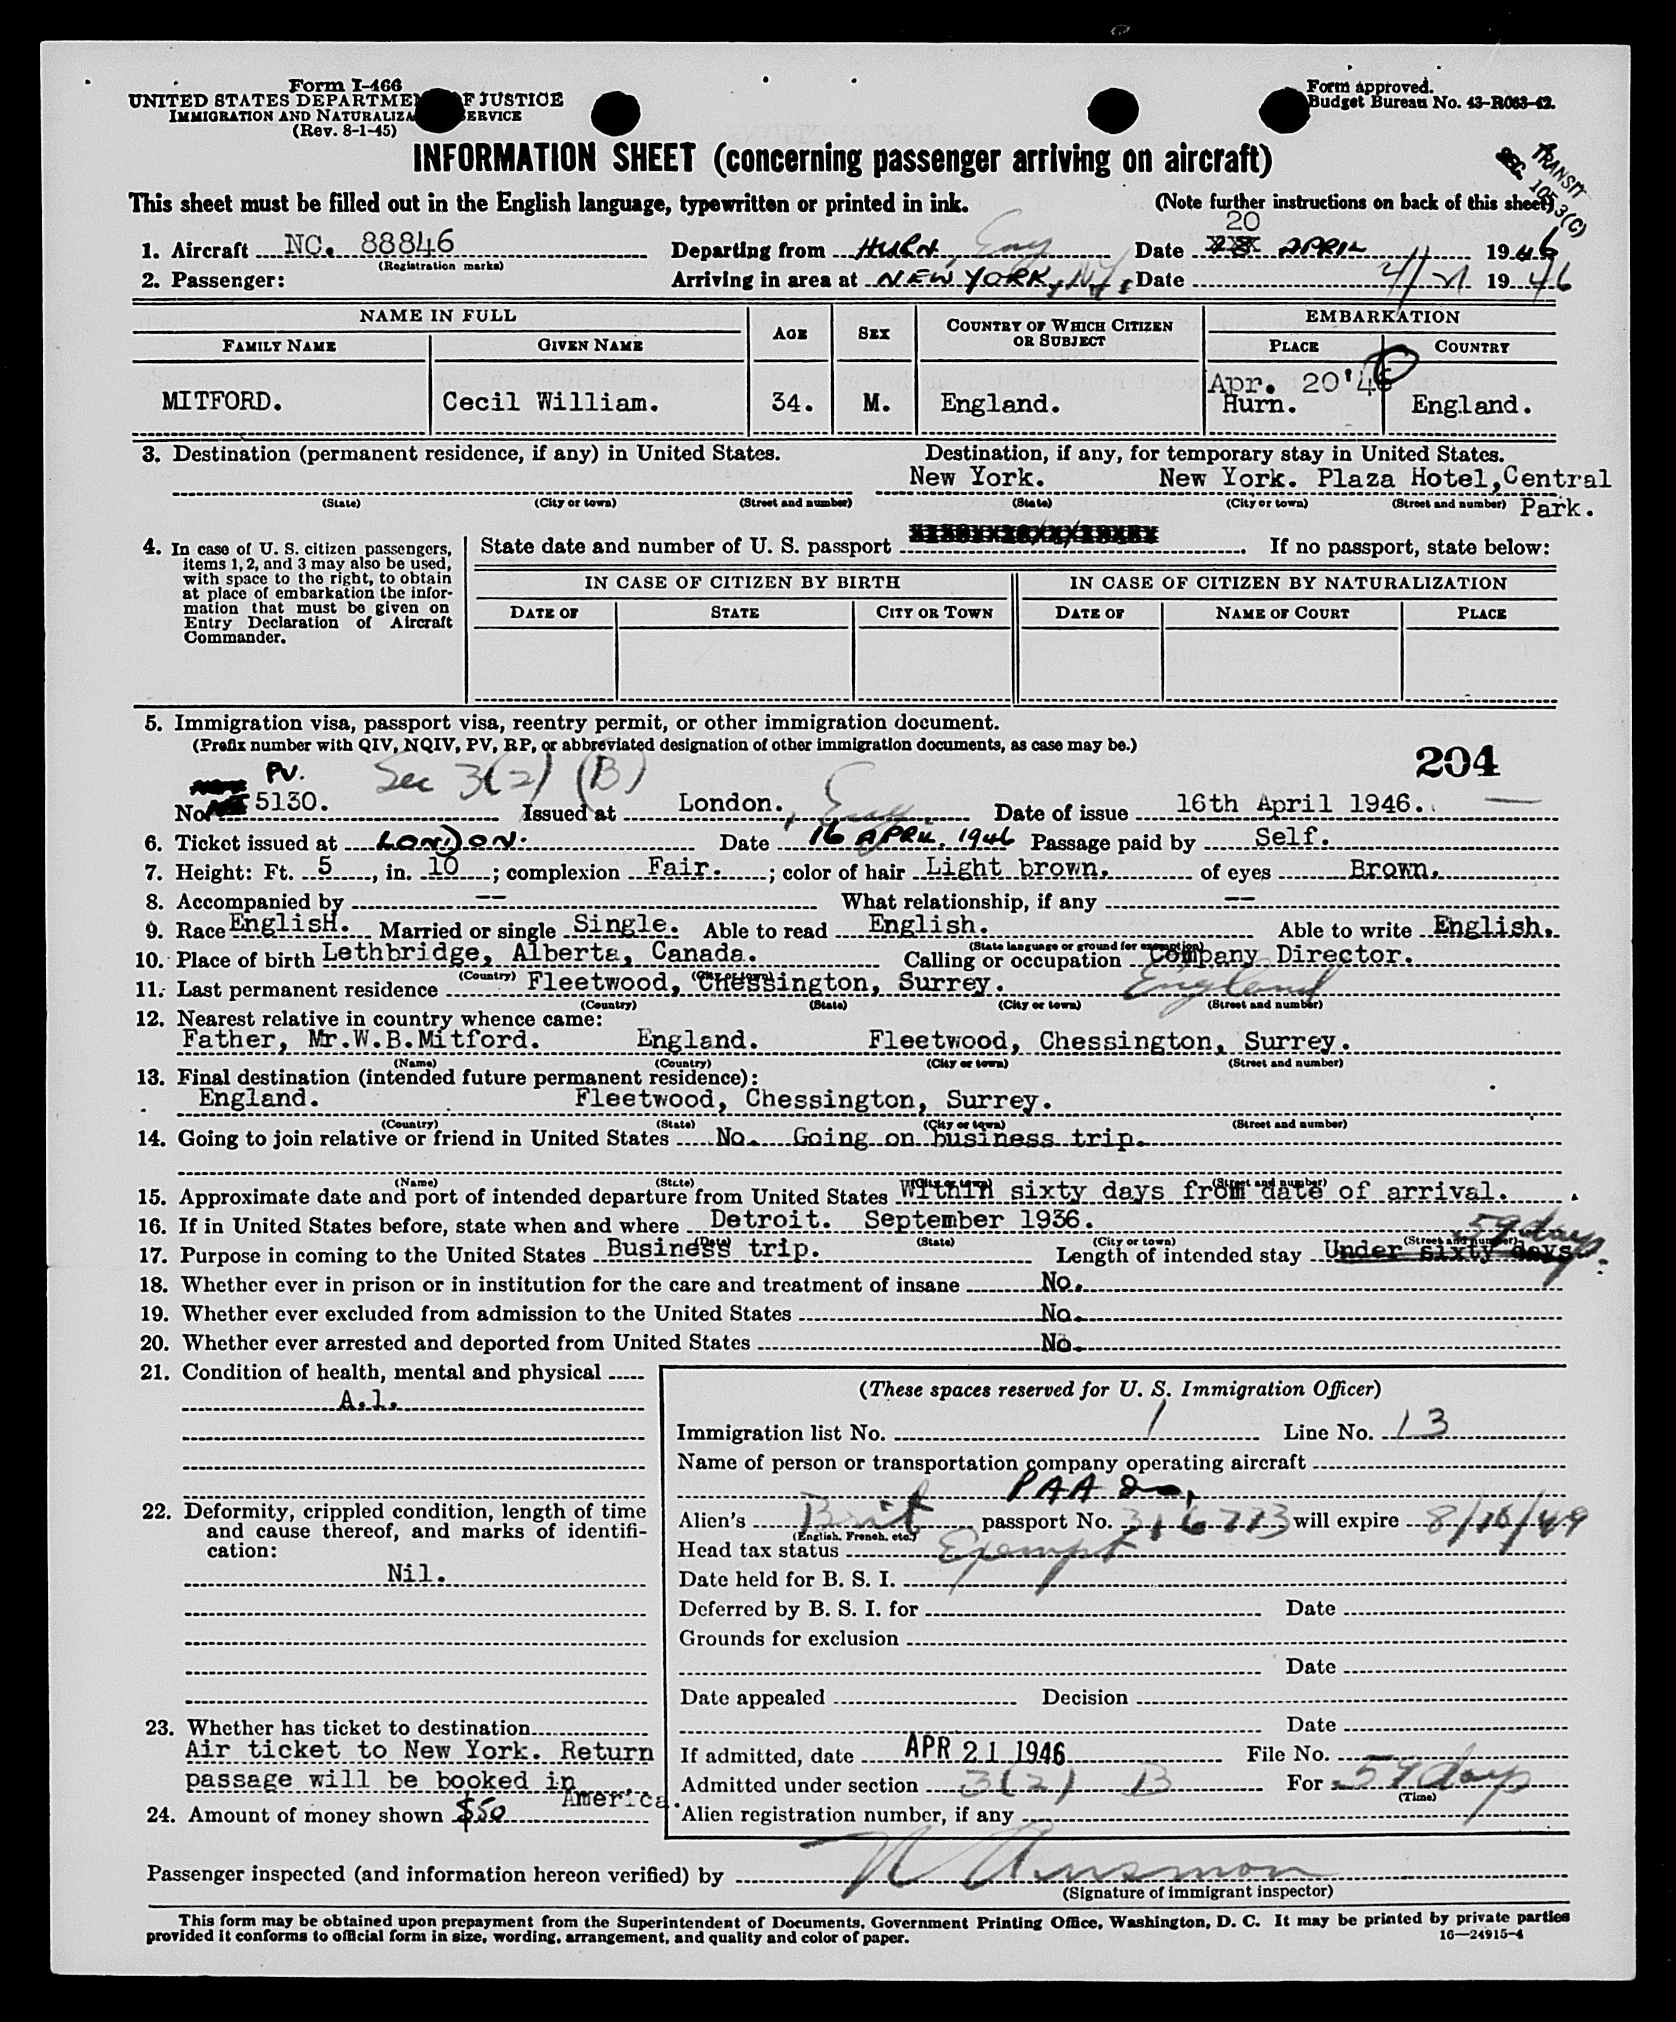 Form I-466
UNITED STATES DEPARTMENT OF JUSTICE
IMMIGRATION AND NATURALIZATION SERVICE
(Rev. 8-1-45)
Form approved.
Budget Bureau No. 43-R063-42.
TRANSIT
SEC. 105.3(C)
INFORMATION SHEET (concerning passenger arriving on aircraft)
This sheet must be filled out in the English language, typewritten or printed in ink. (Note further instructions on back of this sheet)
20
1. Aircraft NC. 88846 Departing from HURN, Eng Date APRIL 1946
(Registration marks)
2. Passenger: Arriving in area at NEW YORK, N.Y. Date 4/21 1946
NAME IN FULL AGE SEX COUNTRY OF WHICH CITIZEN OR SUBJECT EMBARKATION
FAMILY NAME GIVEN NAME PLACE COUNTRY
Apr. 20'46
MITFORD. Cecil William. 34. M. England. Hurn. England.
3. Destination (permanent residence, if any) in United States. Destination, if any, for temporary stay in United States.
New York. New York. Plaza Hotel, Central
(State) (City or town) (Street and number) (State) (City or town) (Street and number) Park.
4. In case of U. S. citizen passengers, items 1, 2, and 3 may also be used, with space to the right, to obtain at place of embarkation the information that must be given on Entry Declaration of Aircraft Commander.
State date and number of U. S. passport . If no passport, state below:
IN CASE OF CITIZEN BY BIRTH IN CASE OF CITIZEN BY NATURALIZATION
DATE OF STATE CITY OR TOWN DATE OF NAME OF COURT PLACE
5. Immigration visa, passport visa, reentry permit, or other immigration document.
(Prefix number with QIV, NQIV, PV, RP, or abbreviated designation of other immigration documents, as case may be.)
204
PV. Sec 3(2) (B)
No. 5130. Issued at London., Eng. Date of issue 16th April 1946.
6. Ticket issued at LONDON. Date 16 APRIL, 1946 Passage paid by Self.
7. Height: Ft. 5, in. 10; complexion Fair.; color of hair Light brown. of eyes Brown.
8. Accompanied by -- What relationship, if any --
9. Race English. Married or single Single. Able to read English. Able to write English.
(State language or ground for exemption)
10. Place of birth Lethbridge, Alberta, Canada. Calling or occupation Company Director.
(Country) (City or town)
11. Last permanent residence Fleetwood, Chessington, Surrey. England
(Country) (State) (City or town) (Street and number)
12. Nearest relative in country whence came:
Father, Mr.W.B.Mitford. England. Fleetwood, Chessington, Surrey.
(Name) (Country) (City or town) (Street and number)
13. Final destination (intended future permanent residence):
England. Fleetwood, Chessington, Surrey.
(Country) (State) (City or town) (Street and number)
14. Going to join relative or friend in United States No. Going on business trip.
(Name) (State) (City or town) (Street and number)
15. Approximate date and port of intended departure from United States Within sixty days from date of arrival.
16. If in United States before, state when and where Detroit. September 1936.
(Date) (State) (City or town) (Street and number)
59 days
17. Purpose in coming to the United States Business trip. Length of intended stay Under sixty days.
18. Whether ever in prison or in institution for the care and treatment of insane No.
19. Whether ever excluded from admission to the United States No.
20. Whether ever arrested and deported from United States No.
21. Condition of health, mental and physical
A.1.
22. Deformity, crippled condition, length of time and cause thereof, and marks of identification:
Nil.
23. Whether has ticket to destination
Air ticket to New York. Return
passage will be booked in
America.
24. Amount of money shown $50
(These spaces reserved for U. S. Immigration Officer)
Immigration list No. 1 Line No. 13
Name of person or transportation company operating aircraft
PAA
Alien's Brit passport No. 316773 will expire
(English, French, etc.)
Head tax status Exempt
Date held for B. S. I.
Deferred by B. S. I. for Date
Grounds for exclusion
Date
Date appealed Decision
Date
If admitted, date APR 21 1946 File No.
Admitted under section 3(2) B For 59 days
(Time)
Alien registration number, if any
Passenger inspected (and information hereon verified) by
(Signature of immigrant inspector)
This form may be obtained upon prepayment from the Superintendent of Documents, Government Printing Office, Washington, D. C. It may be printed by private parties
provided it conforms to official form in size, wording, arrangement, and quality and color of paper.
16—24915-4